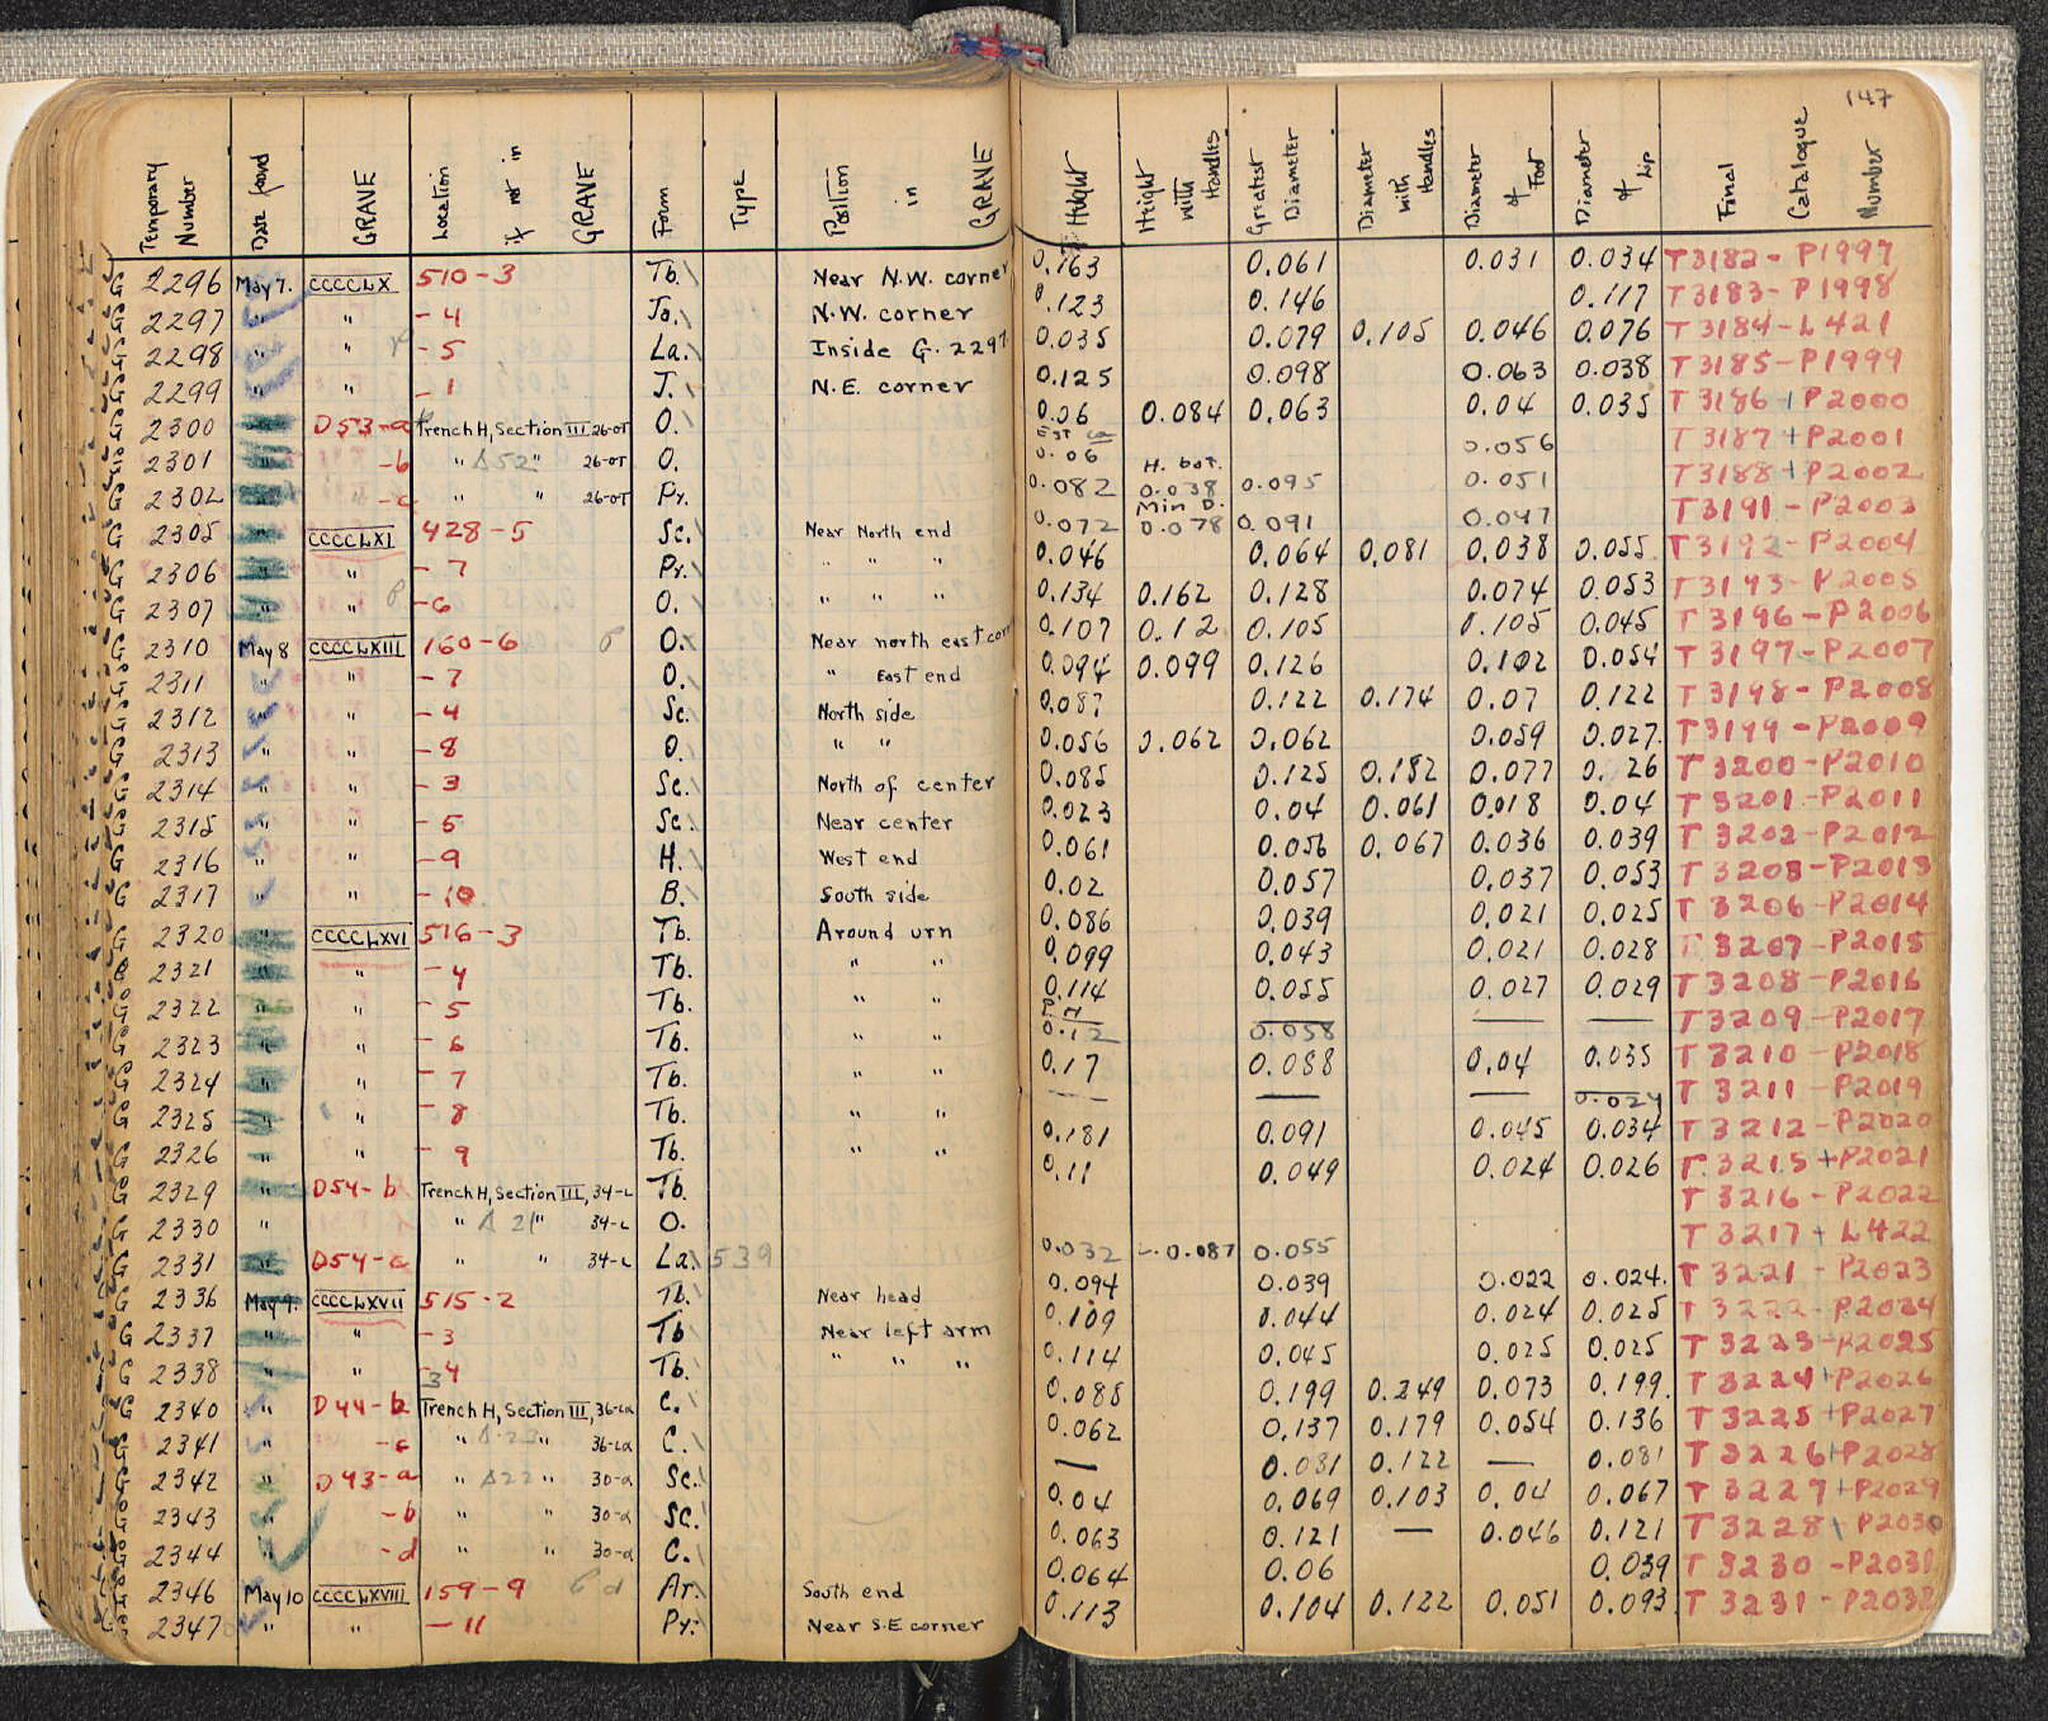 147
Temporary Number | Date found | GRAVE | Location if not in GRAVE | Form | TYPE | Position in GRAVE | Height | Height with Handles | Greatest Diameter | Diameter with Handles | Diameter of Foot | Diameter of Lip | Final Catalogue Number
G 2296 May 7. CCCCLX 510-3 Tb. Near N.W. corner 0.163 0.061 0.031 0.034 T3182- P1997
G 2297 " " -4 Ja. N.W. corner 0.123 0.146 0.117 T3183- P1998
G 2298 " " -5 La. Inside G. 2297 0.035 0.079 0.105 0.046 0.076 T 3184-L421
G 2299 " " -1 J. N.E. corner 0.125 0.098 0.063 0.038 T3185-P1999
G 2300 " D53-a Trench H, Section III 26-OT O. 0.06 0.084 0.063 0.04 0.035 T 3186 +P2000
G 2301 " -b " Δ52 " 26-OT O. Est 0.06 0.056 T 3187 +P2001
G 2302 " -c " " 26-OT Py. 0.082 H. bot. 0.038 0.095 0.051 T3188+P2002
G 2305 " CCCCLXI 428-5 Sc. Near North end 0.072 Min D. 0.078 0.091 0.047 T3191 - P2003
G 2306 " " -7 Py. " " " 0.046 0.064 0.081 0.038 0.055 T3192-P2004
G 2307 " " -6 O. " " " 0.134 0.162 0.128 0.074 0.053 T3193-P2005
G 2310 May 8 CCCCLXIII 160-6 O. Near north east cor 0.107 0.12 0.105 0.105 0.045 T 3196-P2006
G 2311 " " -7 O. " East end 0.094 0.099 0.126 0.102 0.054 T 3197-P2007
G 2312 " " -4 Sc. North side 0.087 0.122 0.174 0.07 0.122 T 3198-P2008
G 2313 " " -8 O. " " 0.056 0.062 0.062 0.059 0.027. T3199 -P2009
G 2314 " " -3 Sc. North of center 0.085 0.125 0.182 0.077 0. 26 T 3200-P2010
G 2315 " " -5 Sc. Near center 0.023 0.04 0.061 0.018 0.04 T 3201-P2011
G 2316 " " -9 H. West end 0.061 0.056 0.067 0.036 0.039 T 3202-P2012
G 2317 " " -10 B. South side 0.02 0.057 0.037 0.053 T 3203-P2013
G 2320 " CCCCLXVI 516-3 Tb. Around urn 0.086 0.039 0.021 0.025 T 3206-P2014
G 2321 " " -4 Tb. " " 0.099 0.043 0.021 0.028 T 3207-P2015
G 2322 " " -5 Tb. " " 0.114 0.055 0.027 0.029 T 3208-P2016
G 2323 " " -6 Tb. " " P.H 0.12 0.058 — — T3209-P2017
G 2324 " " -7 Tb. " " 0.17 0.088 0.04 0.035 T 3210 -P2018
G 2325 " " -8 Tb. " " — — — 0.024 T 3211 -P2019
G 2326 " " -9 Tb. " " 0.181 0.091 0.045 0.034 T 3212-P2020
G 2329 " D54-b Trench H, Section III, 34-L Tb. 0.11 0.049 0.024 0.026 T 3215 +P2021
G 2330 " " Δ 21 " 34-L O. T 3216-P2022
G 2331 " D54-c " " 34-L La. 539 0.032 L. 0.087 0.055 T 3217 + L422
G 2336 May 9. CCCCLXVII 515-2 Tb. Near head 0.094 0.039 0.022 0.024. T 3221 - P2023
G 2337 " " -3 Tb Near left arm 0.109 0.044 0.024 0.025 T 3222-P2024
G 2338 " " -4 3 Tb. " " " 0.114 0.045 0.025 0.025 T 3223-P2025
G 2340 " D44-b Trench H, Section III, 36-La C. 0.085 0.199 0.249 0.073 0.199. T 3224+P2026
G 2341 " -c " Δ 23 " 36-La C. 0.062 0.137 0.179 0.054 0.136 T 3225 +P2027
G 2342 " D43-a " Δ22 " 30-a Sc. — 0.081 0.122 — 0.081 T 3226+P2028
G 2343 " -b " " 30-a Sc. 0.04 0.069 0.103 0.04 0.067 T 3227+P2029
G 2344 " -d " " 30-a C. 0.063 0.121 — 0.046 0.121 T 3228 P2030
G 2346 May 10 CCCCLXVIII 159-9 Ar. South end 0.064 0.06 0.039 T 3230 -P2031
G 2347 " " -11 Py. Near S.E corner 0.113 0.104 0.122 0.051 0.093 T 3231- P2032